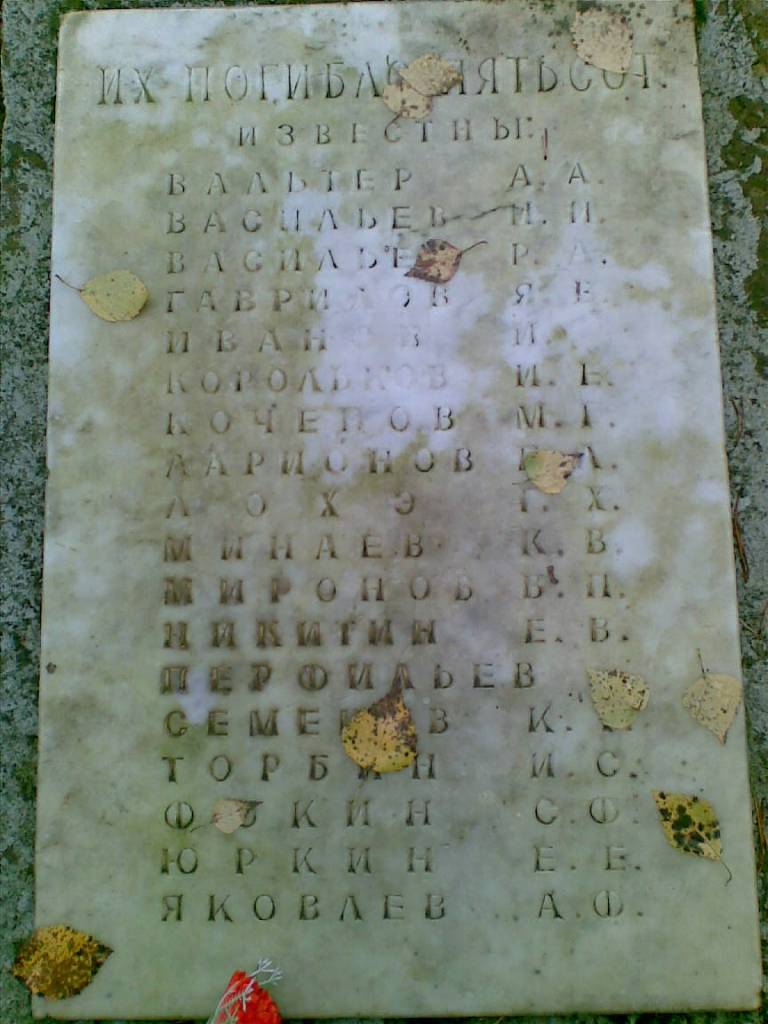 ИХ ПОГИБЛО ПЯТЬСОТ.
ИЗВЕСТНЫ:
ВАЛЬТЕР А. А.
ВАСИЛЬЕВ И. И.
ВАСИЛЬЕВ Р. А.
ГАВРИЛОВ Я. Е.
ИВАНОВ И.
КОРОЛЬКОВ И. Е.
КОЧЕПОВ М. Г.
ЛАРИОНОВ
ЛОХЭ Г. Х.
МИНАЕВ К. В.
МИРОНОВ В. П.
НИКИТИН Е. В.
ПЕРФИЛЬЕВ
СЕМЕНОВ К.
ТОРБИН И. С.
ФОКИН С. Ф.
ЮРКИН Е. Е.
ЯКОВЛЕВ А. Ф.